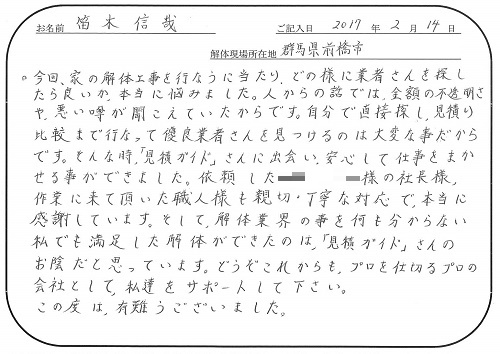 お名前 笛木信哉 ご記入日 2017年2月14日
解体現場所在地 群馬県前橋市
。今回、家の解体工事を行なうに当たり、どの様に業者さんを探し
たら良いか、本当に悩みました。人からの話では、金額の不透明さ
や、悪い噂が聞こえていたからです。自分で直接探し、見積り
比較まで行なって優良業者さんを見つけるのは大変な事だから
です。そんな時、「見積ガイド」さんに出会い、安心して仕事をまか
せる事ができました。依頼した 様の社長様、
作業に来て頂いた職人様も親切・丁寧な対応で、本当に
感謝しています。そして、解体業界の事を何も分からない
私でも満足した解体ができたのは、「見積ガイド」さんの
お陰だと思っています。どうぞこれからも、プロを仕切るプロの
会社として、私達をサポートして下さい。
この度は、有難うございました。